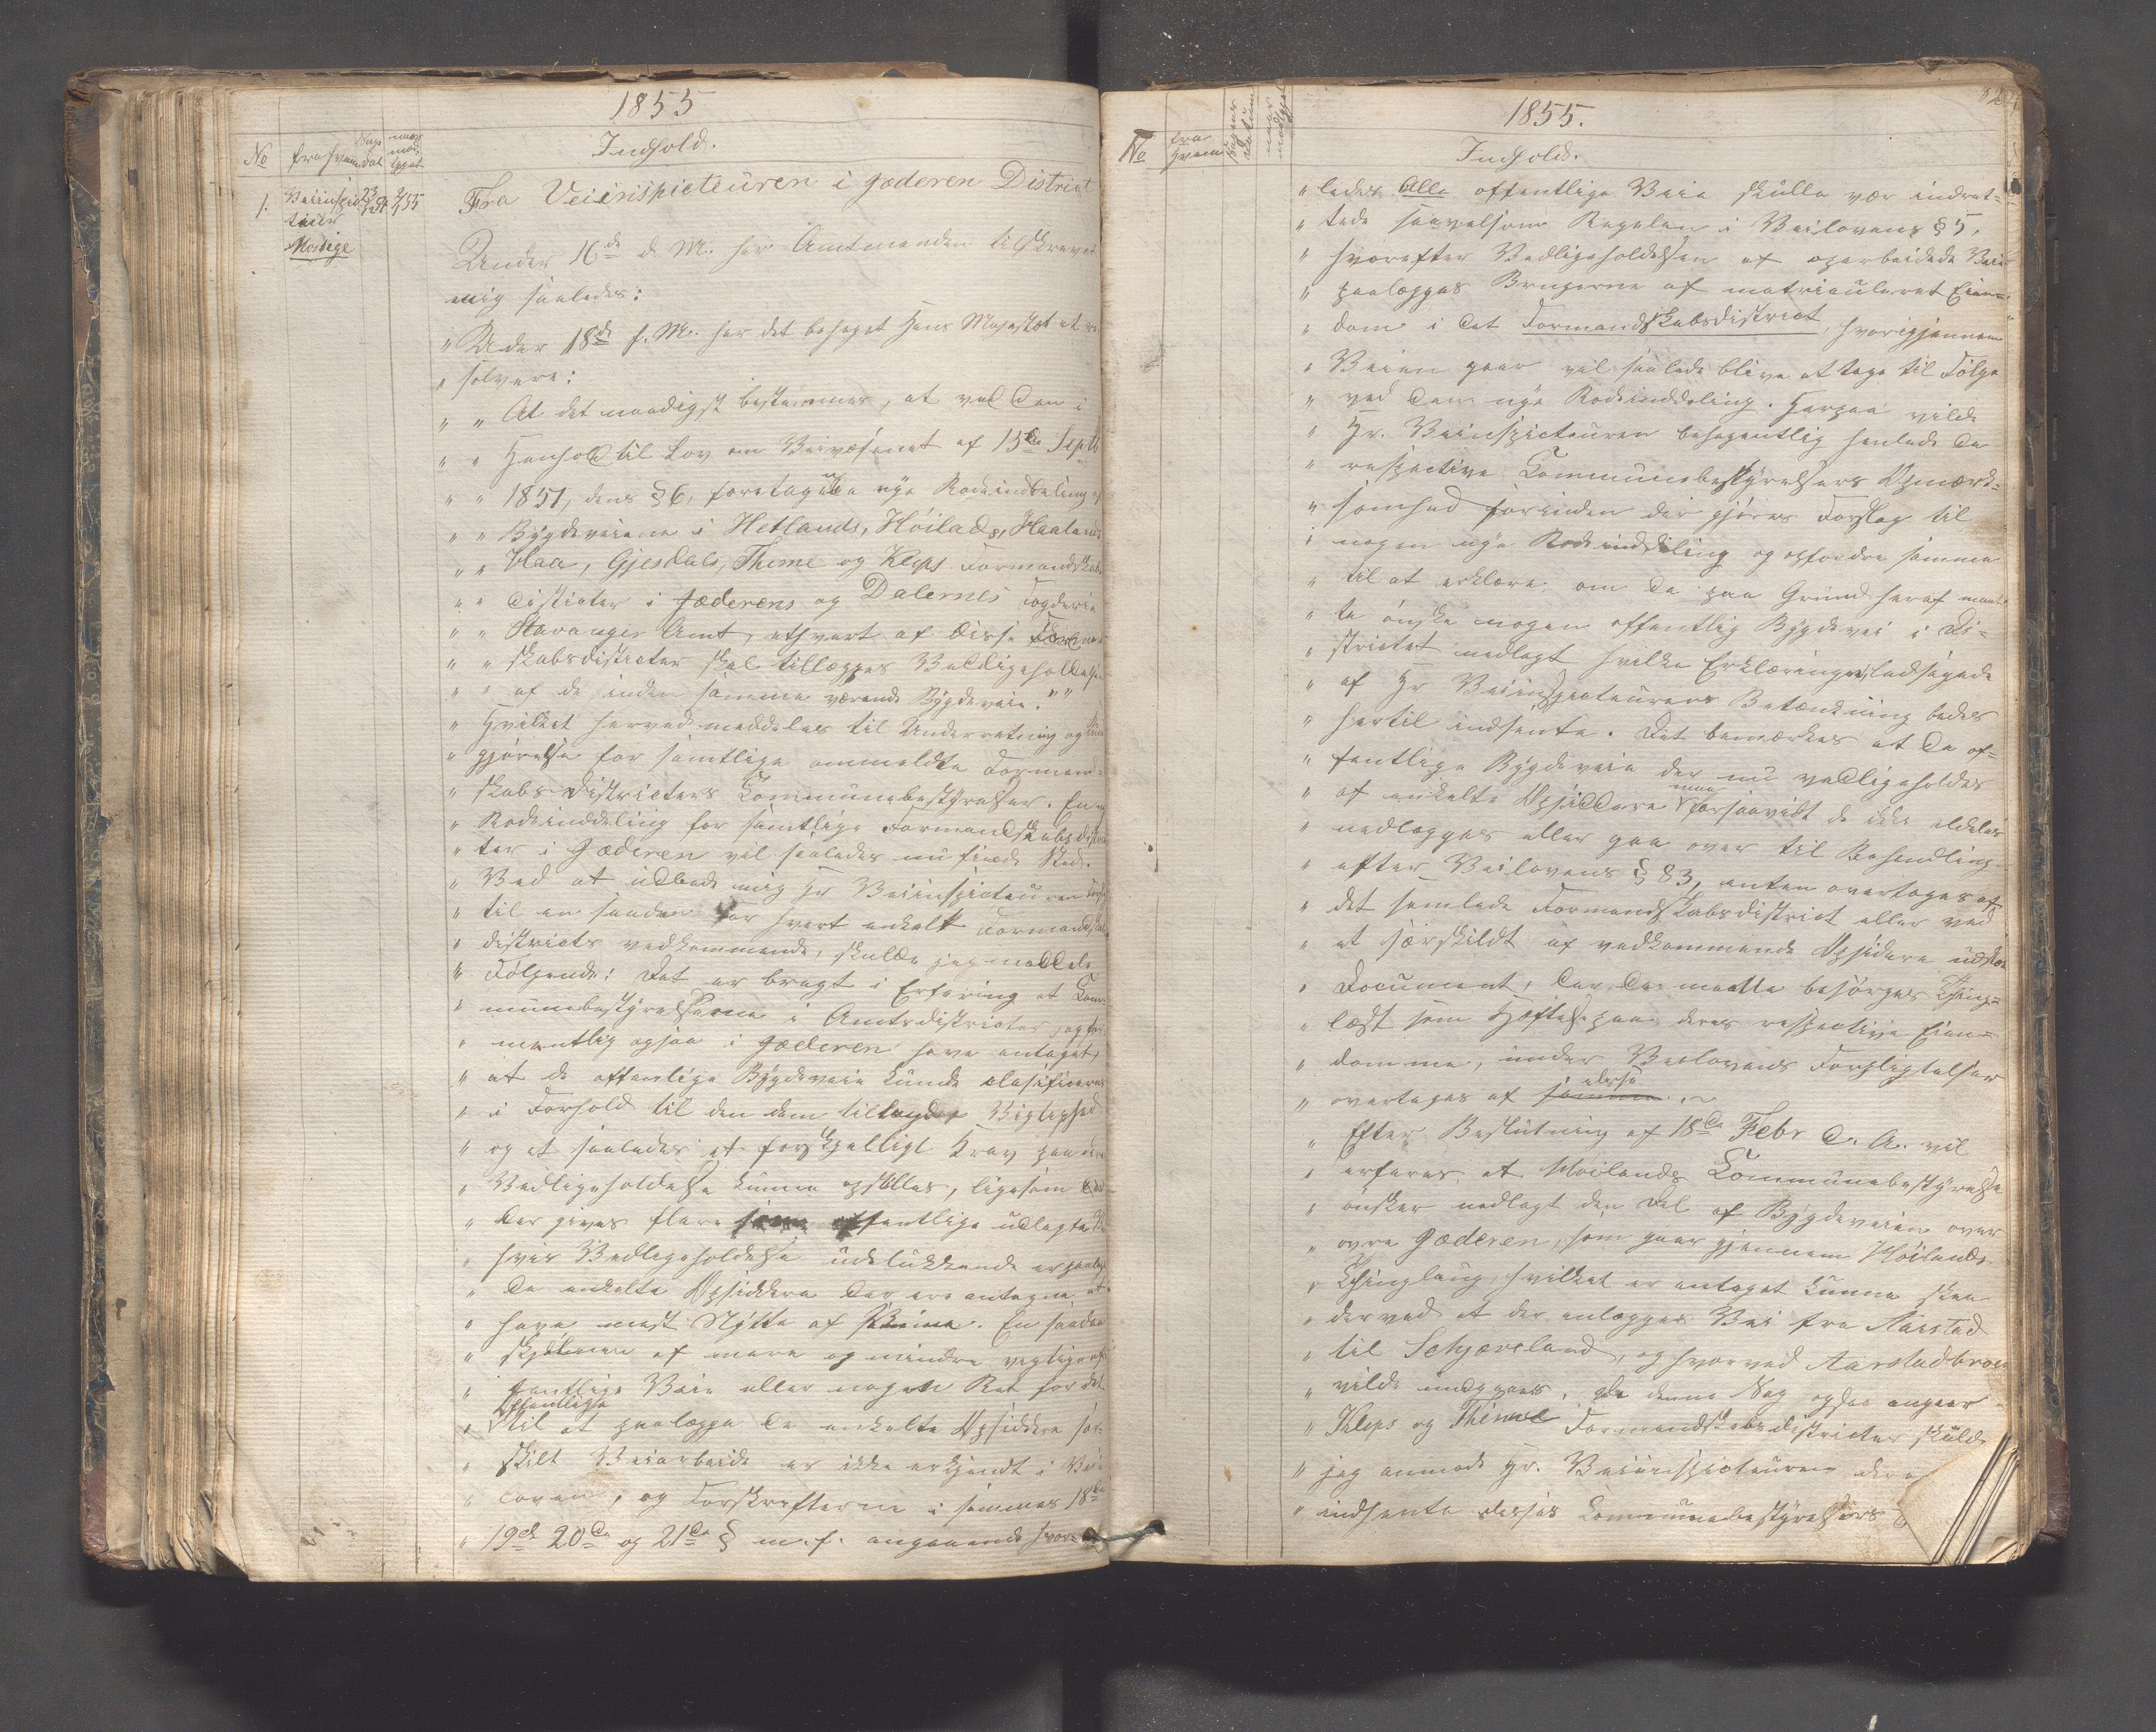 1855
Indhold.
No fra hvem Dat naar modtaget
1. Veiinspec 23/12 54 2/1 55
teur
Modige
Fra Veiinspicteuren i Jæderen District
Under 16de d. M. har Amtmanden tilskrevet
mig saaledes:
" Under 18de f. M. har det behaget Hans Majestæt at re
" solvere:
" " At det naadigst bestemmes, at ved den i
" " Henhold til Lov om Veivæsenet af 15de Septb
" " 1851, dens § 6, foretagende nye Rodeinddeling af
" " Bygdeveiene i Hetlands, Høilads, Haalands
" " Haa, Gjesdals, Thime og Kleps Formandskabs
" " districter i Jæderens og Dalernes Fogderie
" " Stavanger Amt, ethvert af disse Formand
" " skabsdistricter skal tillægges Vedligeholdelsen
" " af de inden samme værende Bygdeveie." "
" Hvilket herved meddeles til Underretning og Kund
" gjørelse for samtlige ommeldte Formand-
" skabs-Districters Communebestyrelser. En ny
" Rodeinddeling for samtlige Formandskabsdistric
" ter i Jæderen vil saaledes nu finde Sted.
" Ved at udbede mig Hr Veiinspicteuren Forslag
" til en saadan for hvert enkelt Formandskabs
" districts vedkommende, skulde jeg meddele
" Følgende: Det er bragt i Erfaring at Com-
" munebestyrelserne i Amtsdistrictet, og for
" mentlig ogsaa i Jæderen have antaget,
" at de offenlige Bygdeveie kunde clasificeres
" i Forhold til den dem tillagde Vigtighed
" og at saaledes et forskjelligt Krav paa deres
" Vedligeholdelse kunne opstilles, ligesom at
" der gives flere som offentlige udlagte Veie
" hvis Vedligeholdelse udelukkende er paalagt
" de enkelte Opsiddere der ere antagne at
" have mest Nytte af Veiene. En saadan
" Skjelnen af mere og mindre vigtige of
" fentlige Veie eller nogen Ret for det
Offentlige
" til at paalægge de enkelte Opsiddere sær-
" skilt Veiarbeide er ikke erkjendt i Vei
" loven, og Forskrifterne i sammes 18de
" 19de 20de og 21de § m. f. angaaende hvor-
1855.
No fra hvem Sagens datum naar modtaget
Indhold.
" ledes Alle offentlige Veie skulle vær indret-
" tede saavelsom Regelen i Veilovens § 5,
" hvorefter Vedligeholdelsen af oparbeidede Veie
" paalægges Brugerne af matriculeret Eien-
" dom i det Formandskabsdistrict, hvorigjennem
" Veien gaar vil saalede blive at tage til Følge
" ved den nye Rodeinddeling. Herpaa vilde
" Hr. Veiinspicteuren behagentlig henlede de
" respective Communebestyrelsers Opmærk-
" somhed forinden der gjøres Forslag til
" nogen nye Rodeinddeling og opfordre samme
" til at erklære, om de paa Grund heraf maat
" te ønske nogen offentlig Bygdevei i Di-
" strictet nedlagt hvilke Erklæringer, ledsagede
" af Hr Veiinspecteurens Betænkning bedes
" hertil indsente. Det bemærkes at de of-
" fentlige Bygdeveie der nu vedligeholdes
" af enkelte Opsiddere maa forsaavidt de ikke aldeles
" nedlægges eller gaa over til Behandling
" efter Veilovens § 83, enten overtages af
" det samlede Formandskabsdistrict eller ved
" et særskildt af vedkommende Opsidere udstæd
" Document, der da maatte besørges Thing-
" læst som Hæftelse paa deres respective Eien-
" domme, under Veilovens Forpligtelser
" overtages af samme disse. ~
" Efter Beslutning af 18de Febr d. A. vil
" erfares, at Høilands Communebestyrelse
" ønsker nedlagt den Del af Bygdeveien over
" øvre Jæderen, som gaar gjennem Høilands
" Thinglaug, hvilket er antaget kunne skee
" derved at der anlægges Vei fra Aarstad
" til Schjæveland, og hvorved Aarstadbroen
" vilde undgaaes, da denne Sag ogsaa angaar
" Kleps og Thimes Formandskabsdistricter skulde
" jeg anmode Hr. Veiinspicteuren
" indsente disses Communebestyrelsers